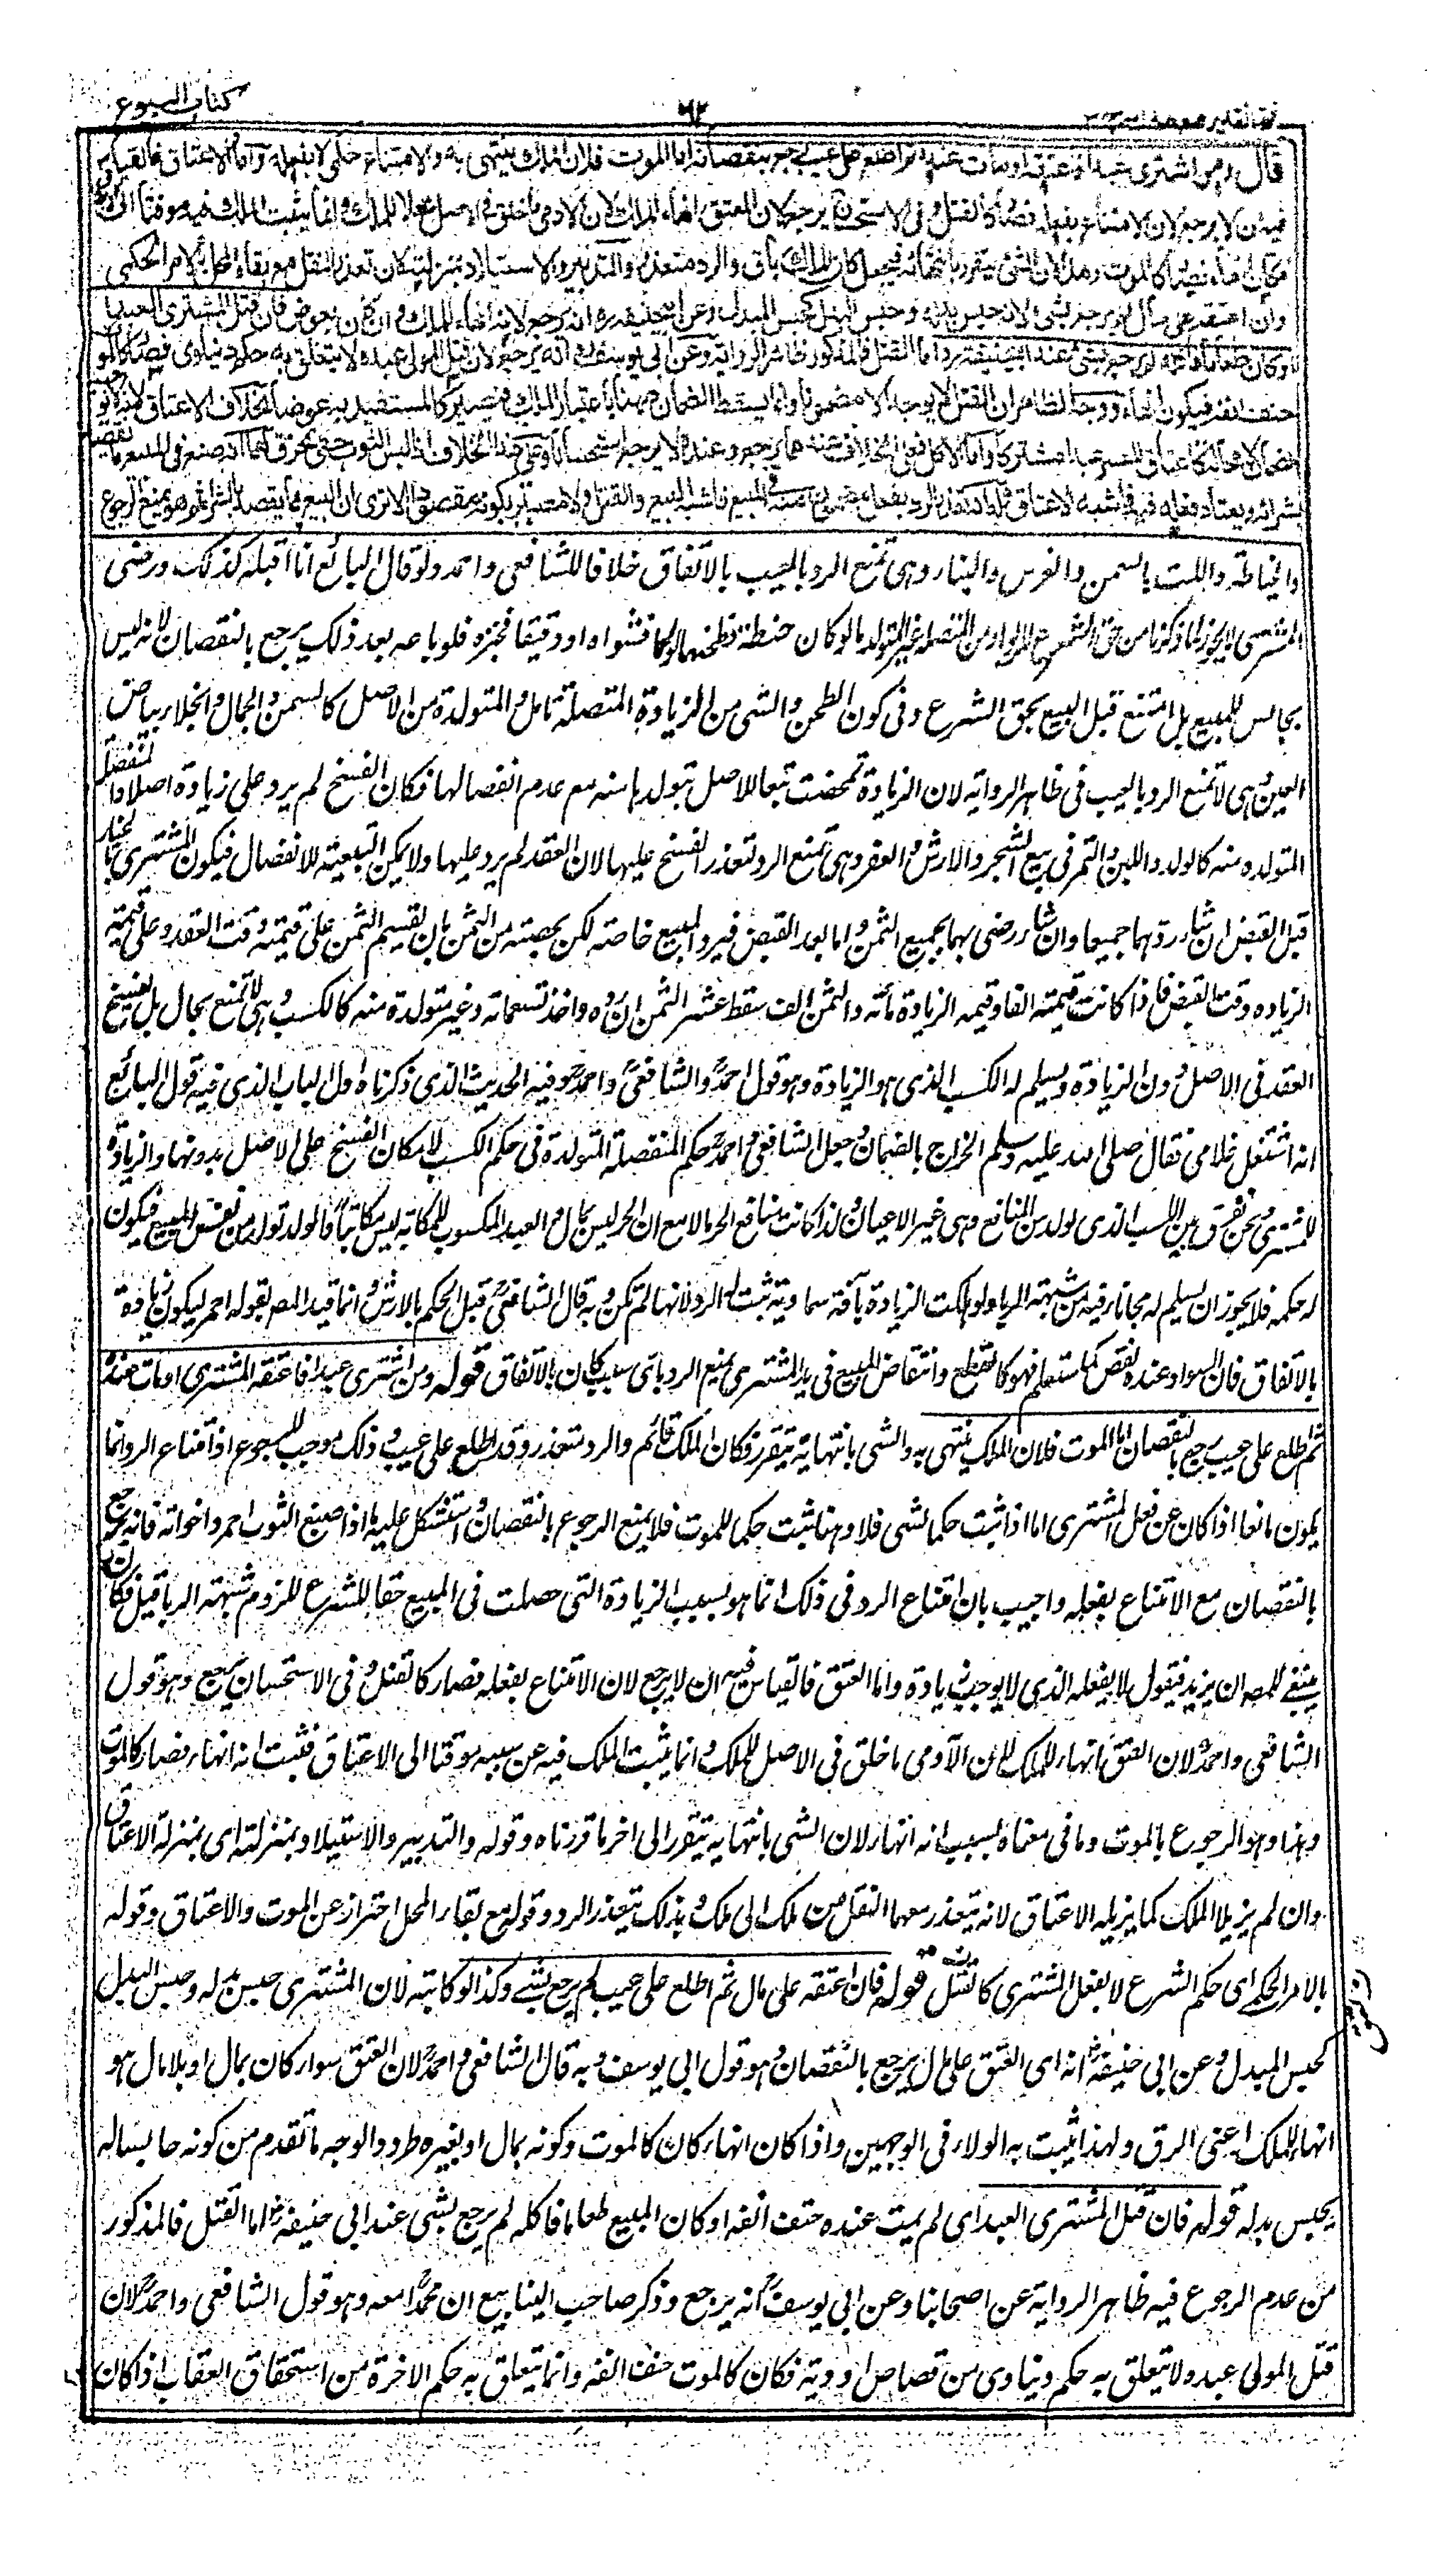 كتاب البيوع
٦٢
فتح القدير مع هداية
قال ومن اشترى عبدا فاعتقه او مات عنده ثم اطلع على عيب رجع بنقصانه اما الموت فلان الملك ينتهي به والامتناع حكمي لا بفعله واما الاعتاق فالقياس
فيه ان لا يرجع لان الامتناع بفعله فصار كالقتل وفي الاستحسان يرجع لان العتق انهاء الملك لان الآدمي ما خلق في الاصل محلا للملك وانما يثبت الملك فيه موقتا الى الاعتاق
فكان انهاء فصار كالموت وهذا لان الشئ يتقرر بانتهائه فيجعل كان الملك باق والرد متعذر والتدبير والاستيلاد بمنزلته لان تعذر النقل مع بقاء المحل بالامر الحكمي
وان اعتقه على مال لم يرجع بشئ لانه حبس بدله وحبس البدل كحبس المبدل وعن ابي حنيفة رح انه يرجع لانه انهاء للملك وان كان بعوض فان قتل المشتري العبد
او كان طعاما فاكله لم يرجع بشئ عند ابي حنيفة رح اما القتل فالمذكور ظاهر الرواية وعن ابي يوسف رح انه يرجع لان قتل المولى عبده لا يتعلق به حكم دنياوي فصار كالموت
حتف انفه فيكون انهاء ووجه الظاهر ان القتل لا يوجد الا مضمونا وانما يسقط الضمان ههنا باعتبار الملك فيصير كالمستفيد به عوضا بخلاف الاعتاق لانه لا يوجب
الضمان لا محالة كاعتاق المعسر عبدا مشتركا واما الاكل فعلى الخلاف فعندهما يرجع وعنده لا يرجع استحسانا وعلى هذا الخلاف اذا لبس الثوب حتى تخرق لهما انه صنع في المبيع ما يقصد
بشرائه ويعتاد فعله فيه فاشبه الاعتاق وله انه تعذر الرد بفعل مضمون منه في المبيع فاشبه البيع والقتل ولا معتبر بكونه مقصودا الا ترى ان البيع مما يقصد بالشراء ثم هو يمنع الرجوع
والخياطة واللت بالسمن والغرس والبناء وهي تمنع الرد بالعيب بالاتفاق خلافا للشافعي واحمد ولو قال البائع انا اقبله كذلك ورضي
المشتري لا يجوز لما ذكرنا من حق الشرع للربوا ومن المتصلة غير المتولدة ما لو كان حنطة فطحنها او لحما فشواه او دقيقا فخبزه فلو باعه بعد ذلك يرجع بالنقصان لانه ليس
بحابس للمبيع بل امتنع قبل البيع بحق الشرع وفي كون الطحن والشي من الزيادة المتصلة تامل والمتولدة من الاصل كالسمن والجمال وانجلاء بياض
العين وهي لا تمنع الرد بالعيب في ظاهر الرواية لان الزيادة تمحضت تبعا للاصل بتولدها منه مع عدم انفصالها فكان الفسخ لم يرد على زيادة اصلا واما المنفصلة
المتولدة منه كالولد واللبن والثمر في بيع الشجر والارش والعقر وهي تمنع الرد لتعذر الفسخ عليها لان العقد لم يرد عليها ولا يمكن التبعية للانفصال فيكون المشتري بالخيار
قبل القبض ان شاء ردهما جميعا وان شاء رضي بهما بجميع الثمن واما بعد القبض فيرد المبيع خاصة لكن بحصته من الثمن بان يقسم الثمن على قيمته وقت العقد وعلى قيمة
الزيادة وقت القبض فاذا كانت قيمته الفا وقيمة الزيادة مائة والثمن الف سقط عشر الثمن ان رده واخذ تسعمائة وغير متولدة منه كالكسب وهي لا تمنع بحال بل يفسخ
العقد في الاصل دون الزيادة ويسلم له الكسب الذي هو الزيادة وهو قول احمد والشافعي واحمد وفيه الحديث الذي ذكرناه اول الباب الذي فيه قول البائع
انه اشتغل غلامي فقال صلى الله عليه وسلم الخراج بالضمان وجعل الشافعي واحمد حكم المنفصلة المتولدة في حكم الكسب لامكان الفسخ على الاصل بدونها والزيادة
للمشتري ونحن نفرق بين الكسب الذي لولد من المنافع وهي غير الاعيان ولذا كانت منافع الحر مالا مع ان الحر ليس بمال والعبد المكسوب للمكاتب ليس مكاتبا والولد تولد من نفس المبيع فيكون
له حكمه فلا يجوز ان يسلم له مجانا لما فيه من شبهة الربا ولو هلكت الزيادة بآفة سماوية ثبت له الرد لانها لم تكن وبه قال الشافعي قبل الحكم بالارش وانما قيد المص بقوله احمر ليكون زيادة
بالاتفاق فان السواد عنده نقص كما ستعلم فهو كالقطع وانتقاض المبيع في يد المشتري يمنع الرد باي سبب كان بالاتفاق قوله ومن اشترى عبدا فاعتقه المشتري او مات عنده
ثم اطلع على عيب رجع بالنقصان اما الموت فلان الملك ينتهي به والشئ بانتهائه يتقرر فكان الملك قائم والرد متعذر وقد اطلع على عيب وذلك موجب للرجوع اذ امتناع الرد انما
يكون مانعا اذا كان عن فعل المشتري اما اذا ثبت حكما لشئ فلا وهنا ثبت حكما للموت فلا يمنع الرجوع بالنقصان واستشكل عليه ما اذا صبغ الثوب احمر واخواته فانه يرجع
بالنقصان مع الامتناع بفعله واجيب بان امتناع الرد في ذلك انما هو بسبب الزيادة التي حصلت في المبيع حقا للشرع للزوم شبهة الربا قيل فكان
ينبغي للمصـ ان يزيد فيقول لا بفعله الذي لا يوجب زيادة واما العتق فالقياس فيه ان لا يرجع لان الامتناع بفعله فصار كالقتل وفي الاستحسان يرجع وهو قول
الشافعي واحمد لان العتق انهاء للملك لان الآدمي ما خلق في الاصل للملك وانما يثبت الملك فيه عن سببه موقتا الى الاعتاق فثبت انه انهاء فصار كالموت
وهذا وهو الرجوع بالموت وما في معناه بسبب انه انهاء لان الشئ بانتهائه يتقرر الى اخر ما قررناه وقوله والتدبير والاستيلاد بمنزلته اي بمنزلة الاعتاق
وان لم يزيلا الملك كما يزيله الاعتاق لانه يتعذر معهما النقل من ملك الى ملك وبذلك يتعذر الرد وقوله مع بقاء المحل احتراز عن الموت والاعتاق وقوله
بالامر الحكمي اي حكم الشرع لا بفعل المشتري كالقتل قوله فان اعتقه على مال ثم اطلع على عيب لم يرجع بشئ وكذا لو كاتبه لان المشتري حبس بدله وحبس البدل
كحبس المبدل وعن ابي حنيفة انه اي العتق على مال يرجع بالنقصان وهو قول ابي يوسف وبه قال الشافعي واحمد لان العتق سواء كان بمال او بلا مال هو
انهاء للملك اعني الرق ولهذا يثبت به الولاء في الوجهين واذا كان انهاء كان كالموت وكونه بمال او بغيره طرد والوجه ما تقدم من كونه حابسا له
بحبس بدله قوله فان قتل المشتري العبد اي لم يمت عنده حتف انفه او كان المبيع طعاما فاكله لم يرجع بشئ عند ابي حنيفة اما القتل فالمذكور
من عدم الرجوع فيه ظاهر الرواية عن اصحابنا وعن ابي يوسف انه يرجع وذكر صاحب الينابيع ان محمدا معه وهو قول الشافعي واحمد لان
قتل المولى عبده لا يتعلق به حكم دنياوي من قصاص او دية فكان كالموت حتف انفه وانما يتعلق به حكم الآخرة من استحقاق العقاب اذا كان